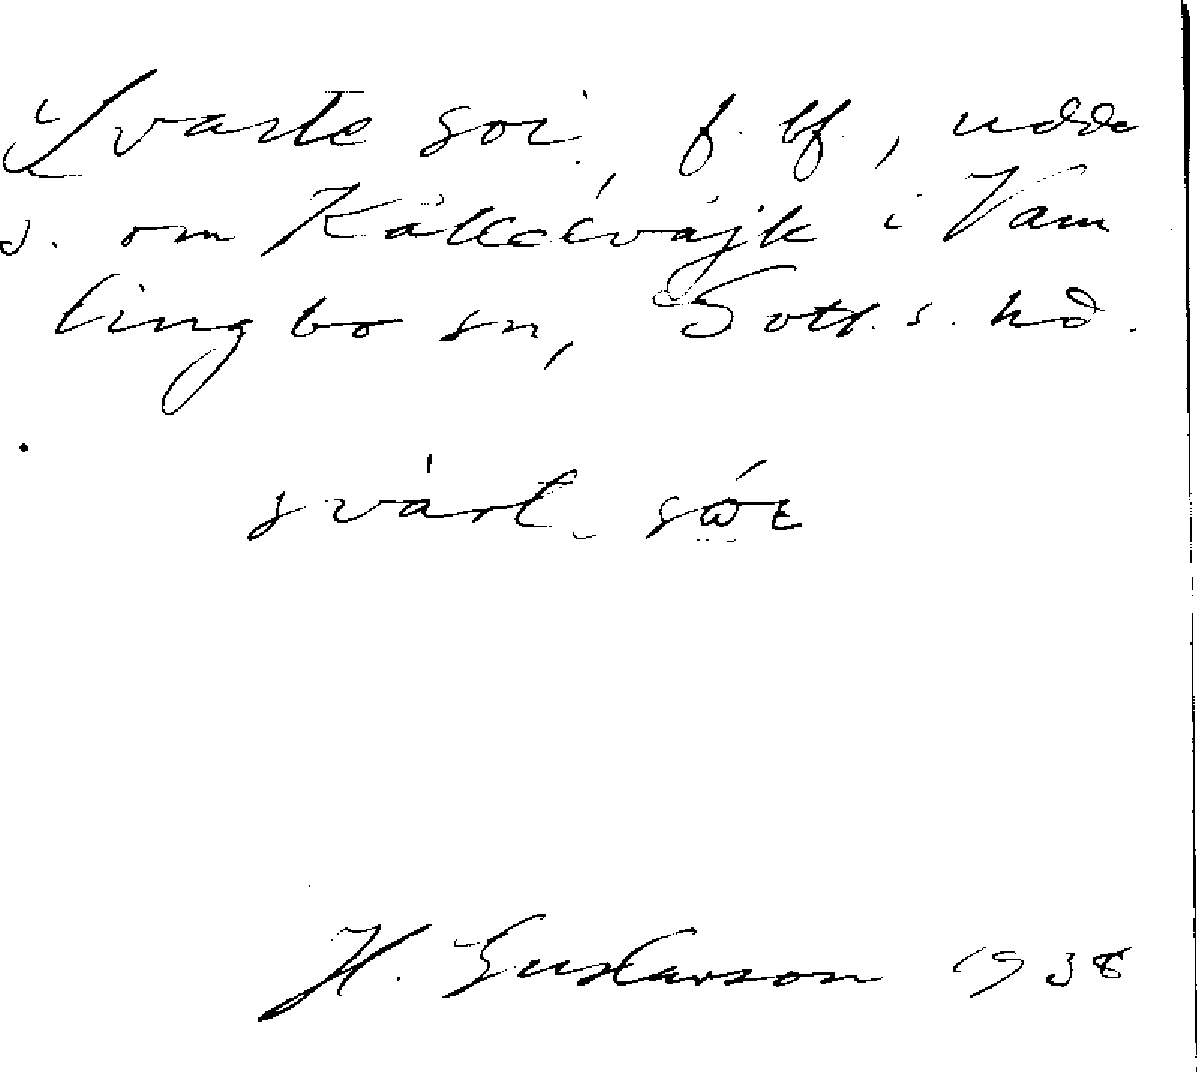 Svarte soi, f. bf., udde
s. om Källelvajk i Vam
lingbo sn, Gotl. s. hd.
H. Gustavson 1938